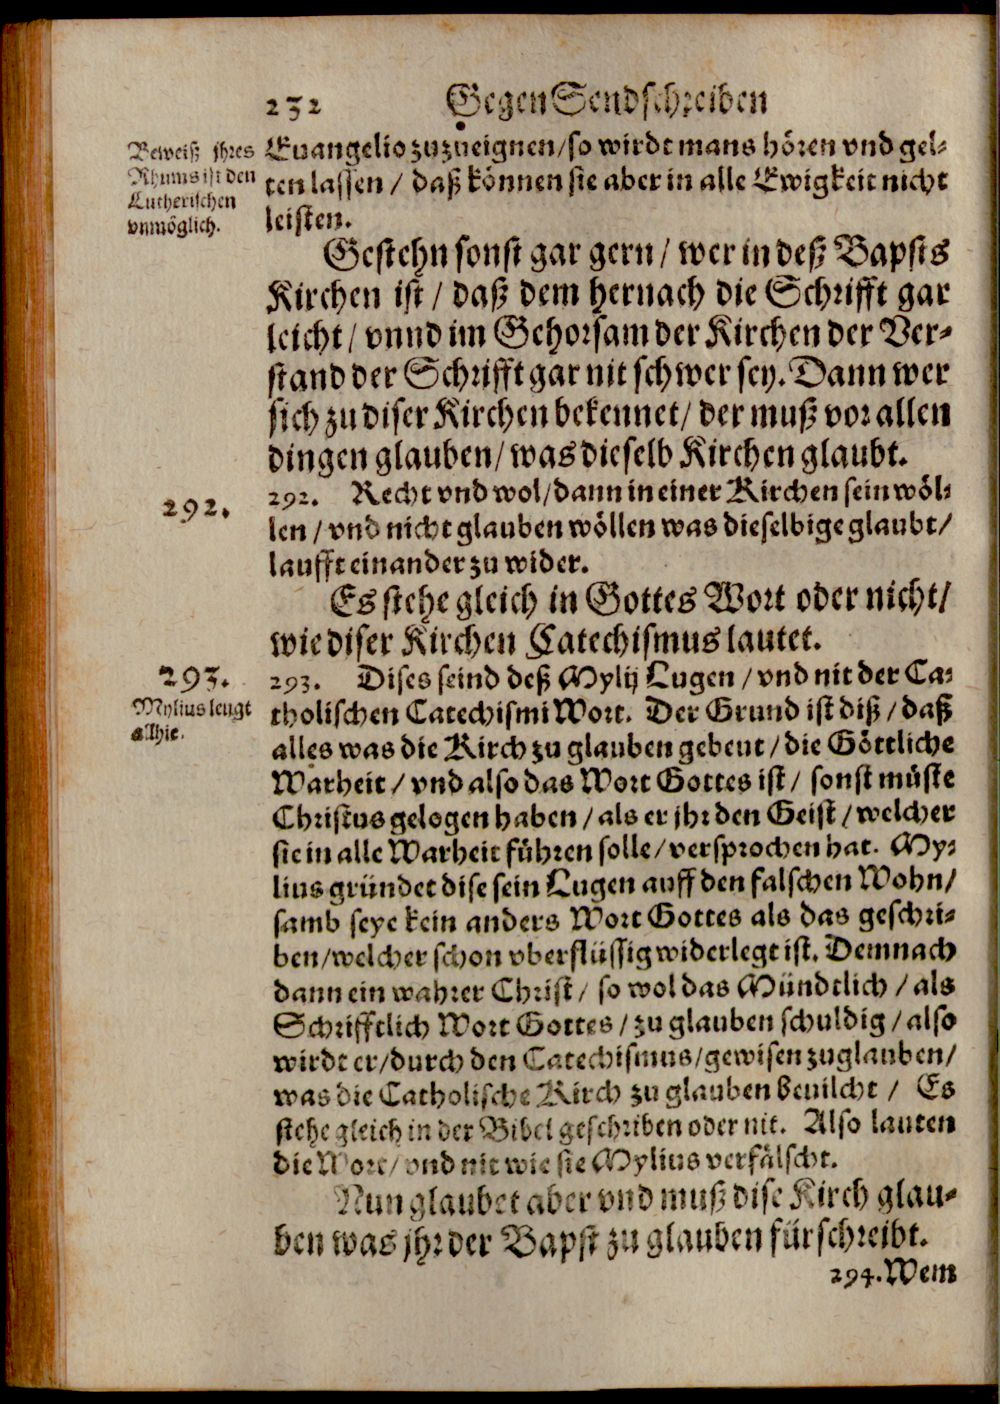 232 Gegen Sendschreiben
Beweiß jhres
Rhums ist den
Lutherischen
vnmöglich.
Euangelio zuzueignen/ so wirdt mans hören vnd gel-
ten lassen / daß können sie aber in alle Ewigkeit nicht
leisten.
Gestehn sonst gar gern / wer in deß Bapsts
Kirchen ist / daß dem hernach die Schrifft gar
leicht / vnnd im Gehorsam der Kirchen der Ver-
stand der Schrifft gar nit schwer sey. Dann wer
sich zu diser Kirchen bekennet / der muß vor allen
dingen glauben / was dieselb Kirchen glaubt.
292.
292. Recht vnd wol / dann in einer Kirchen sein wöl-
len / vnd nicht glauben wöllen was dieselbige glaubt /
laufft einander zu wider.
Es stehe gleich in Gottes Wort oder nicht /
wie diser Kirchen Catechismus lautet.
293.
Mylius leugt
allhie.
293. Dises seind deß Mylij Lugen / vnd nit der Ca-
tholischen Catechismi Wort. Der Grund ist diß / daß
alles was die Kirch zu glauben gebeut / die Göttliche
Warheit / vnd also das Wort Gottes ist / sonst müste
Christus gelogen haben / als er jhr den Geist / welcher
sie in alle Warheit führen solle / versprochen hat. My-
lius gründet dise sein Lugen auff den falschen Wohn /
samb seye kein anders Wort Gottes als das geschri-
ben / welcher schon vberflüssig widerlegt ist. Demnach
dann ein wahrer Christ / so wol das Mündtlich / als
Schrifftlich Wort Gottes / zu glauben schuldig / also
wirdt er / durch den Catechismus / gewisen zuglauben /
was die Catholische Kirch zu glauben beuilcht / Es
stehe gleich in der Bibel geschriben oder nit. Also lauten
die Wort / vnd nit wie sie Mylius verfälscht.
Nun glaubet aber vnd muß dise Kirch glau-
ben was jhr der Bapst zu glauben fürschreibt.
294. Wem